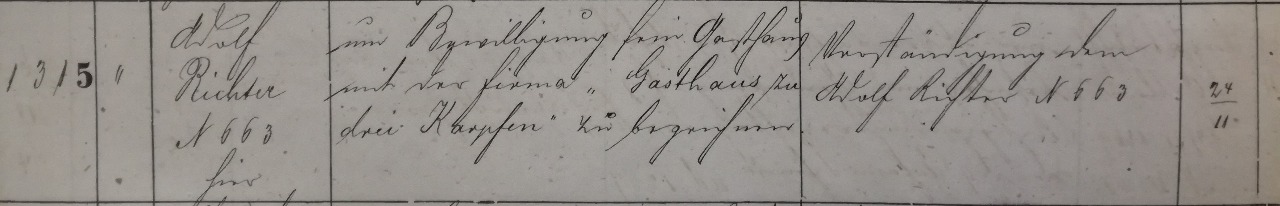 1315
"
Adolf
Richter
N 663
hier
um Bewilligung sein Gasthaus
mit der Firma „Gasthaus zu
drei Karpfen“ zu bezeichnen.
Verständigung dem
Adolf Richter N 663
24
11